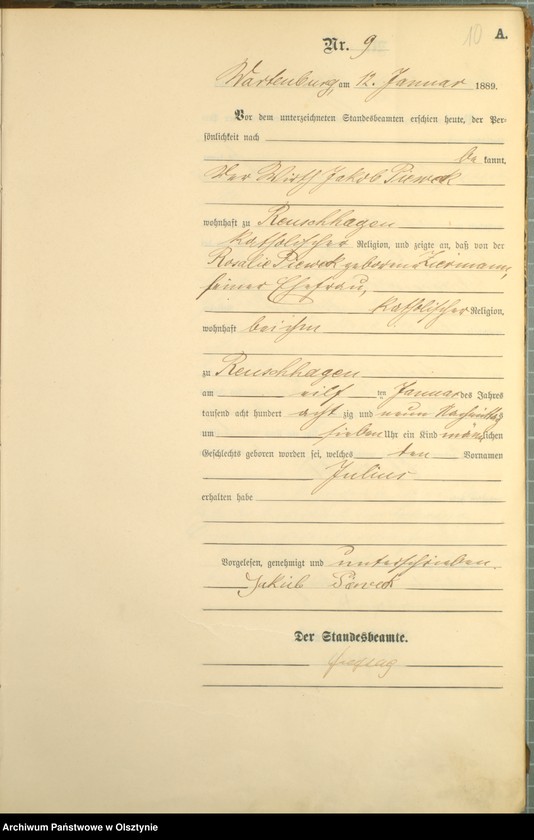 10 A.
Nr. 9
Wartenburg, am 12. Januar 1889.
Vor dem unterzeichneten Standesbeamten erschien heute, der Per-
sönlichkeit nach
be kannt,
der Wirth Jakob Piewek
wohnhaft zu Reuschhagen
katholischer Religion, und zeigte an, daß von der
Rosalie Piewek geborenen Ziermann,
seiner Ehefrau,
katholischer Religion,
wohnhaft bei ihm
zu Reuschhagen
am eilf ten Januar des Jahres
tausend acht hundert acht zig und neun Nachmittags
um sieben Uhr ein Kind männlichen
Geschlechts geboren worden sei, welches den Vornamen
Julius
erhalten habe
Vorgelesen, genehmigt und unterschrieben.
Jakob
Der Standesbeamte.
Archiwum Państwowe w Olsztynie